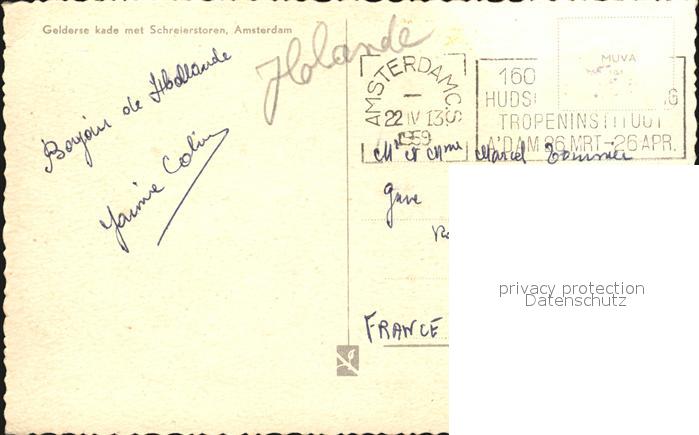 Gelderse kade met Schreierstoren, Amsterdam
Holande
Bonjour de Hollande
AMSTERDAM C.S
22 IV 13
1959
160
HUDS
TROPENINSTITUUT
A'DAM 26 MRT - 26 APR.
MUVA
Mr et Mme Marcel
FRANCE
privacy protection
Datenschutz